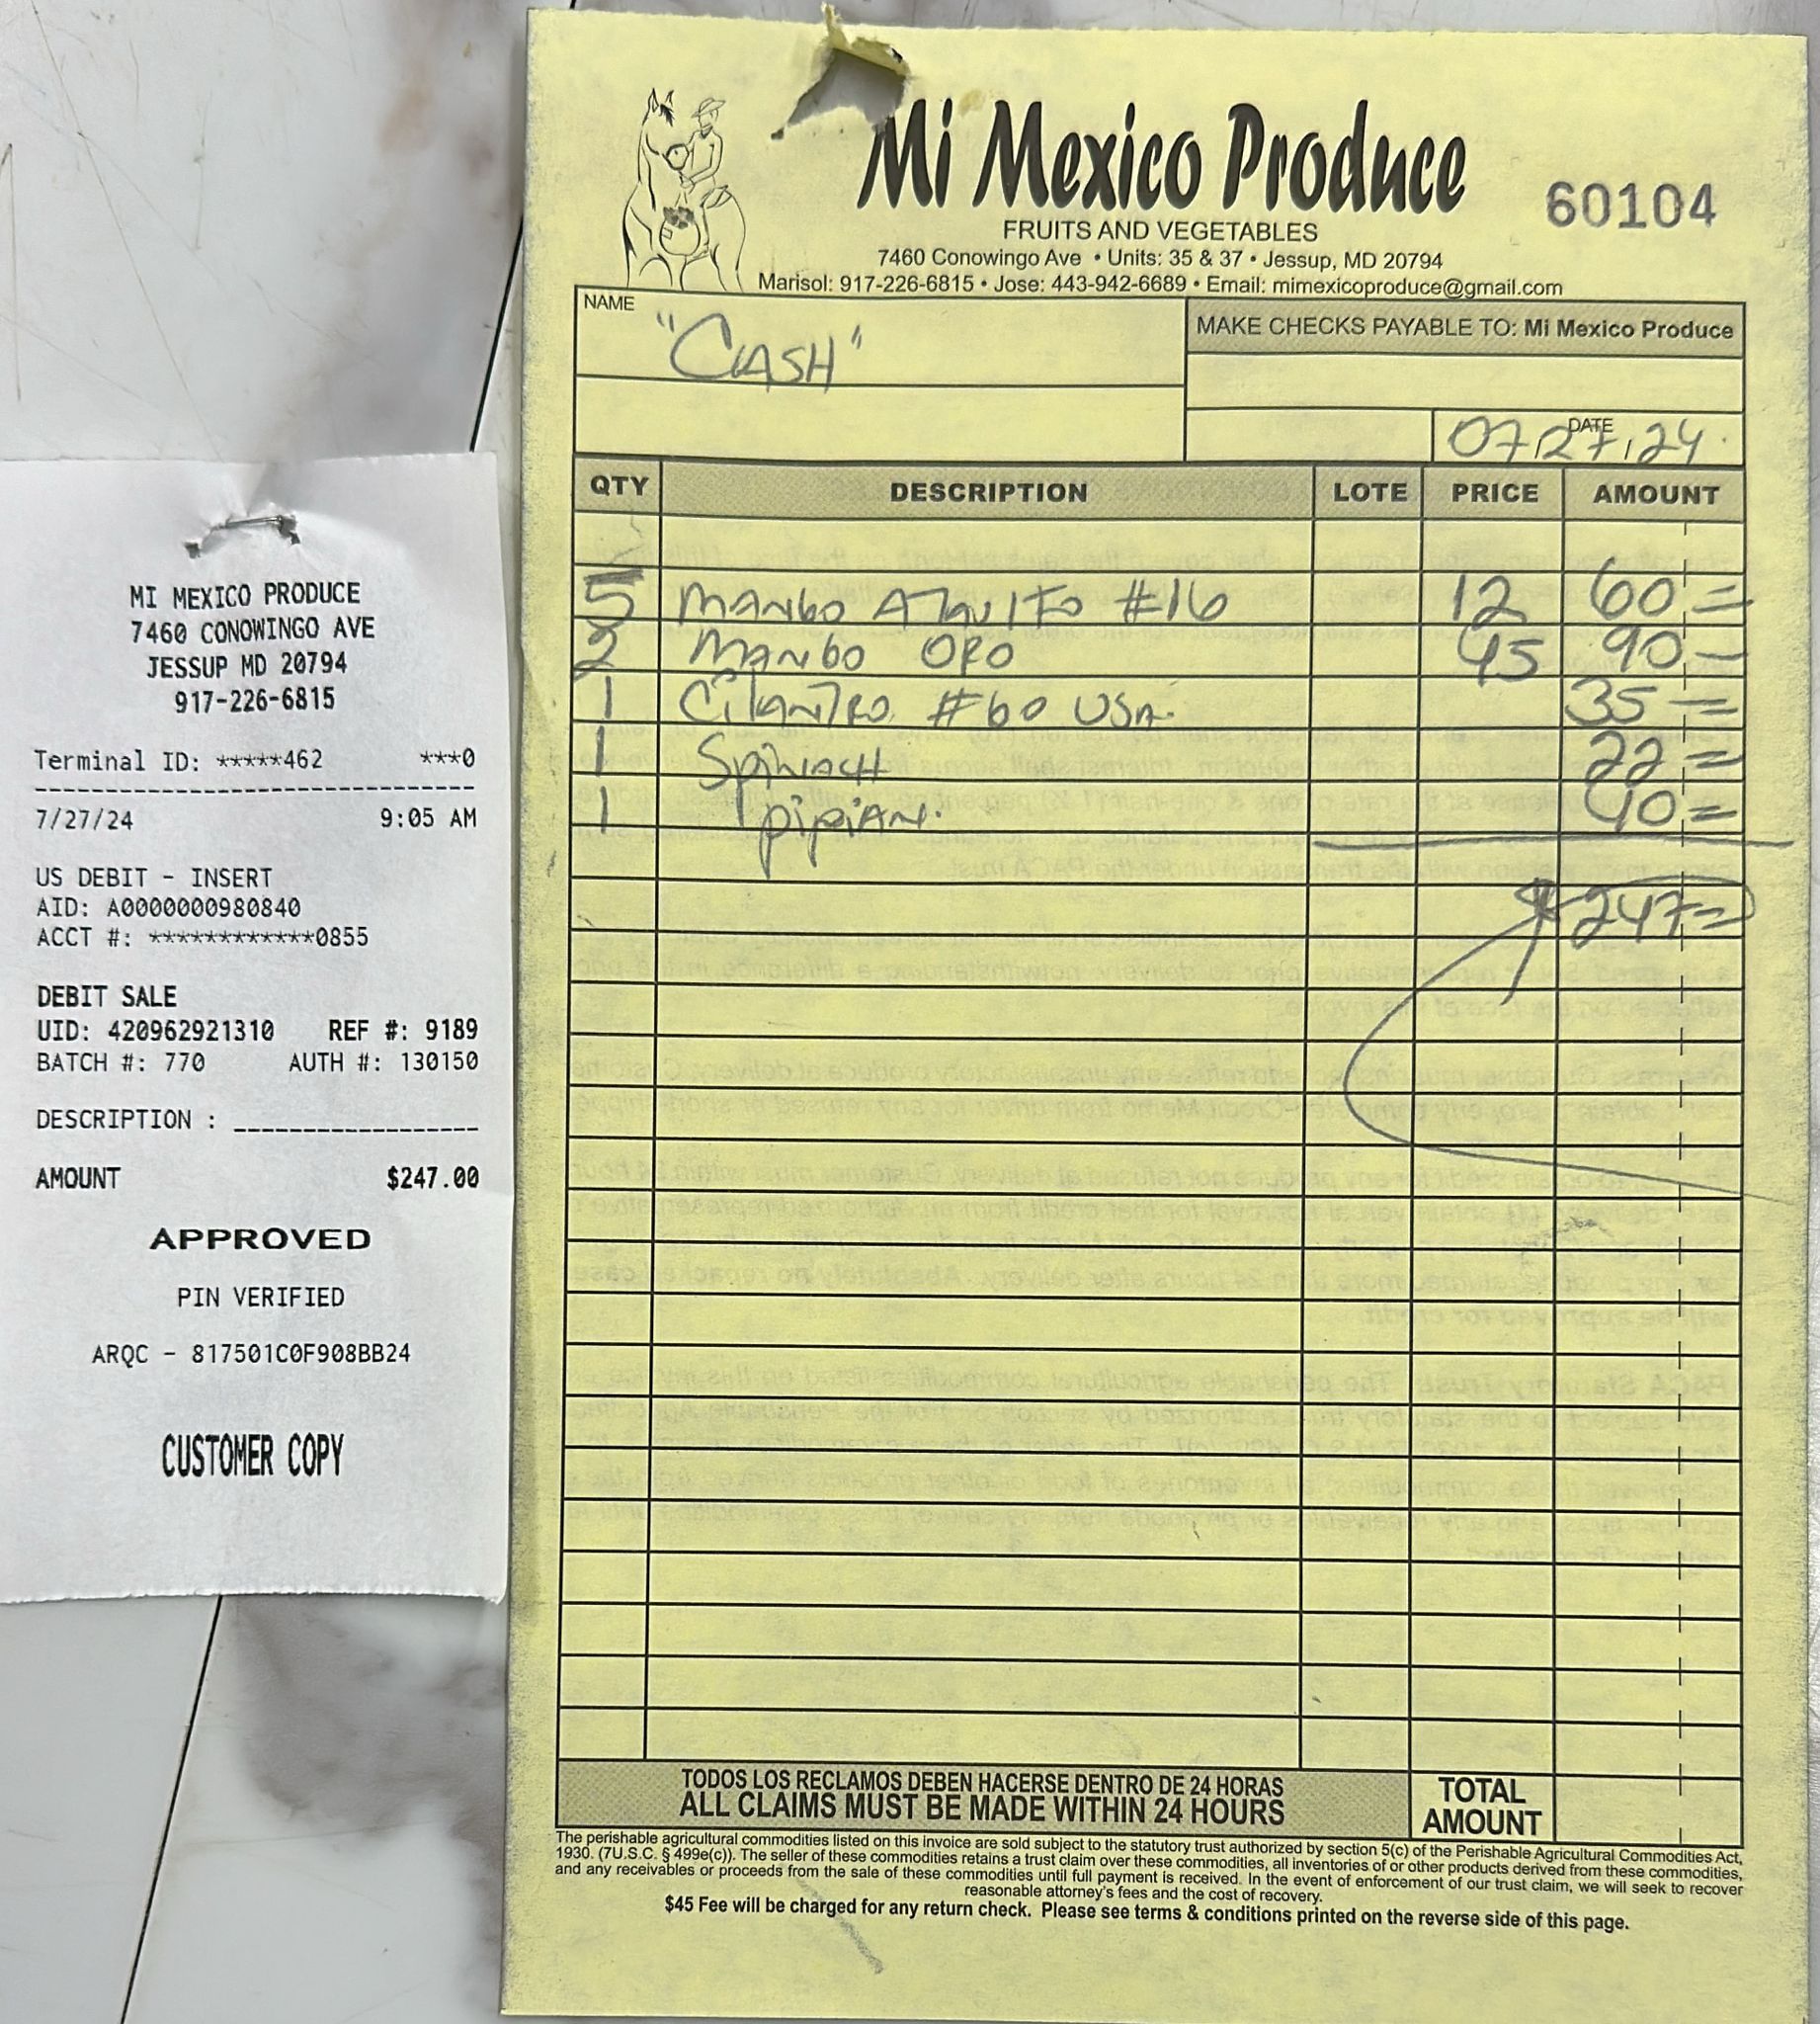 MI MEXICO PRODUCE
7460 CONOWINGO AVE
JESSUP MD 20794
917-226-6815
Terminal ID: *****462 ***0
7/27/24 9:05 AM
US DEBIT - INSERT
AID: A0000000980840
ACCT #: ************0855
DEBIT SALE
UID: 420962921310 REF #: 9189
BATCH #: 770 AUTH #: 130150
DESCRIPTION :
AMOUNT $247.00
APPROVED
PIN VERIFIED
ARQC - 817501C0F908BB24
CUSTOMER COPY
Mi Mexico Produce
60104
FRUITS AND VEGETABLES
7460 Conowingo Ave • Units: 35 & 37 • Jessup, MD 20794
Marisol: 917-226-6815 • Jose: 443-942-6689 • Email: mimexicoproduce@gmail.com
NAME
"CASH"
MAKE CHECKS PAYABLE TO: Mi Mexico Produce
DATE
07/27/24
QTY DESCRIPTION LOTE PRICE AMOUNT
5 MANGO ATAULFO #16 12 60=
2 MANGO ORO 45 90-
1 CILANTRO #60 USA. 35=
1 SPINACH 22=
1 PIPIAN. 40=
$247=
TODOS LOS RECLAMOS DEBEN HACERSE DENTRO DE 24 HORAS
ALL CLAIMS MUST BE MADE WITHIN 24 HOURS
TOTAL AMOUNT
The perishable agricultural commodities listed on this invoice are sold subject to the statutory trust authorized by section 5(c) of the Perishable Agricultural Commodities Act,
1930. (7U.S.C. § 499e(c)). The seller of these commodities retains a trust claim over these commodities, all inventories of or other products derived from these commodities,
and any receivables or proceeds from the sale of these commodities until full payment is received. In the event of enforcement of our trust claim, we will seek to recover
reasonable attorney's fees and the cost of recovery.
$45 Fee will be charged for any return check. Please see terms & conditions printed on the reverse side of this page.